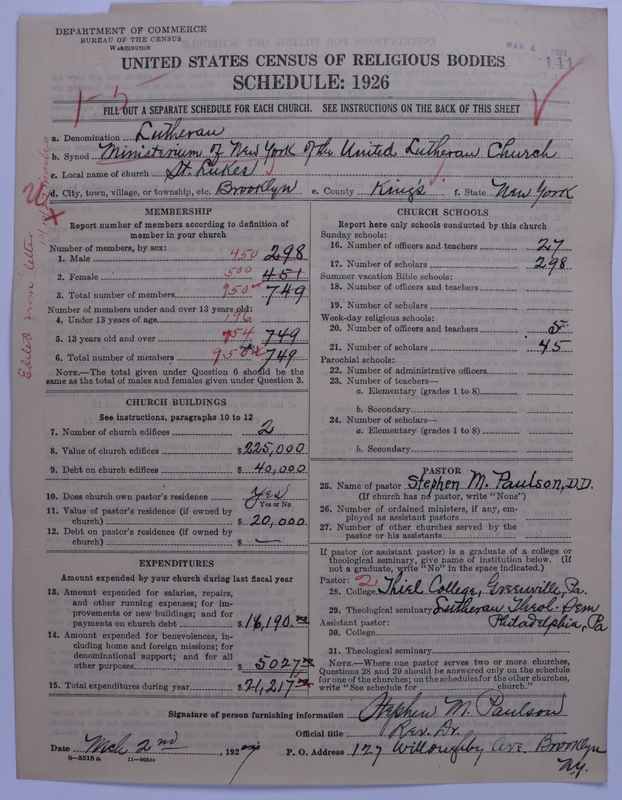 DEPARTMENT OF COMMERCE
BUREAU OF THE CENSUS
WASHINGTON
MAR 4 1927
111
UNITED STATES CENSUS OF RELIGIOUS BODIES
SCHEDULE: 1926
1-5
FILL OUT A SEPARATE SCHEDULE FOR EACH CHURCH. SEE INSTRUCTIONS ON THE BACK OF THIS SHEET
a. Denomination Lutheran
b. Synod Ministerium of New York of the United Lutheran Church
c. Local name of church St. Lukes
d. City, town, village, or township, etc. Brooklyn e. County King's f. State New York
Edited from letter
MEMBERSHIP
Report number of members according to definition of member in your church
Number of members, by sex:
1. Male 450 298
2. Female 500 451
3. Total number of members 950 749
Number of members under and over 13 years old:
4. Under 13 years of age 196
5. 13 years old and over 754 749
6. Total number of members 950 749
NOTE.—The total given under Question 6 should be the
same as the total of males and females given under Question 3.
CHURCH BUILDINGS
See instructions, paragraphs 10 to 12
7. Number of church edifices 2
8. Value of church edifices $225,000
9. Debt on church edifices $40,000
10. Does church own pastor's residence Yes
Yes or No
11. Value of pastor's residence (if owned by
church) $20,000
12. Debt on pastor's residence (if owned by
church) $ —
EXPENDITURES
Amount expended by your church during last fiscal year
13. Amount expended for salaries, repairs,
and other running expenses; for im-
provements or new buildings; and for
payments on church debt $16,190.00
14. Amount expended for benevolences, in-
cluding home and foreign missions; for
denominational support; and for all
other purposes $5027.00
15. Total expenditures during year $21,217.00
CHURCH SCHOOLS
Report here only schools conducted by this church
Sunday schools:
16. Number of officers and teachers 27
17. Number of scholars 298
Summer vacation Bible schools:
18. Number of officers and teachers
19. Number of scholars
Week-day religious schools:
20. Number of officers and teachers 5
21. Number of scholars 45
Parochial schools:
22. Number of administrative officers
23. Number of teachers—
a. Elementary (grades 1 to 8)
b. Secondary
24. Number of scholars—
a. Elementary (grades 1 to 8)
b. Secondary
PASTOR
25. Name of pastor Stephen M. Paulson, D.D.
(If church has no pastor, write "None")
26. Number of ordained ministers, if any, em-
ployed as assistant pastors
27. Number of other churches served by the
pastor or his assistants
If pastor (or assistant pastor) is a graduate of a college or
theological seminary, give name of institution below. (If
not a graduate, write "No" in the space indicated.)
Pastor: 2
28. College Thiel College, Greenville, Pa.
29. Theological seminary Lutheran Theol. Sem
Philadelphia, Pa
Assistant pastor:
30. College
31. Theological seminary
NOTE.—Where one pastor serves two or more churches,
Questions 28 and 29 should be answered only on the schedule
for one of the churches; on the schedules for the other churches,
write "See schedule for church."
Signature of person furnishing information Stephen M. Paulson
Official title Rev. Dr.
Date Mch 2nd, 1927 P. O. Address 127 Willoughby Ave. Brooklyn
N.Y.
8—5518a 11—9056a